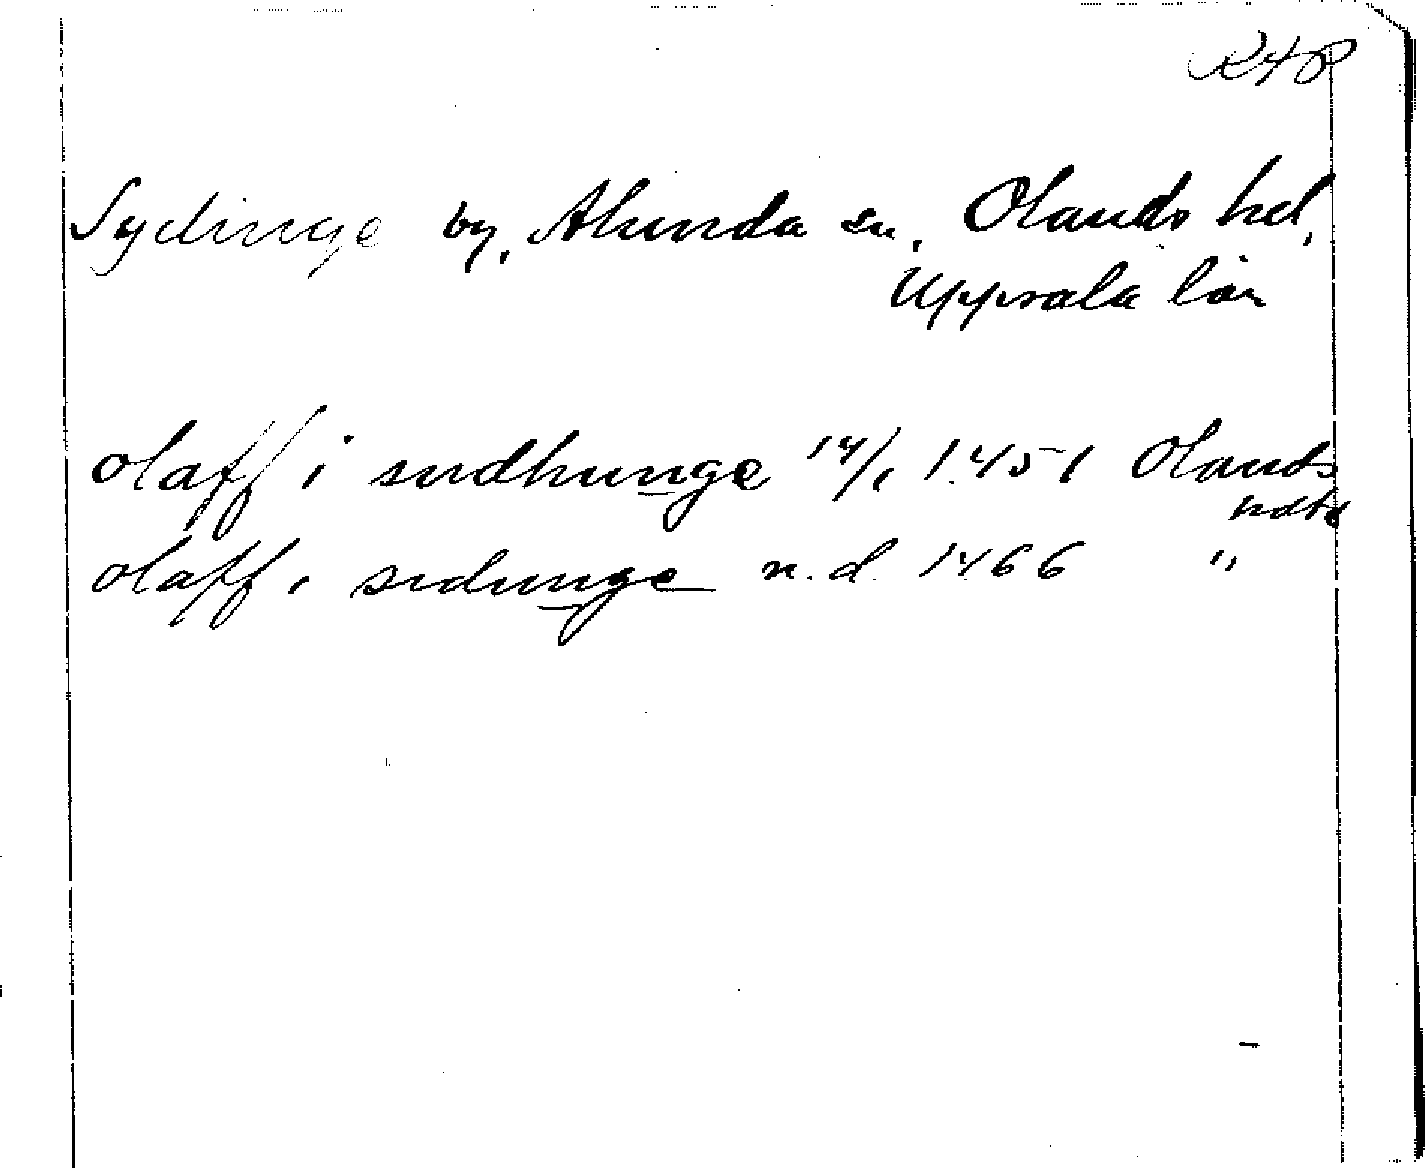 RAP
Sydinge by, Alunda sn, Olands hd,
Uppsala län
olaff i sudhunge 14/1 1451 Olands
hdte
olaff i sidunge n.d. 1466 "